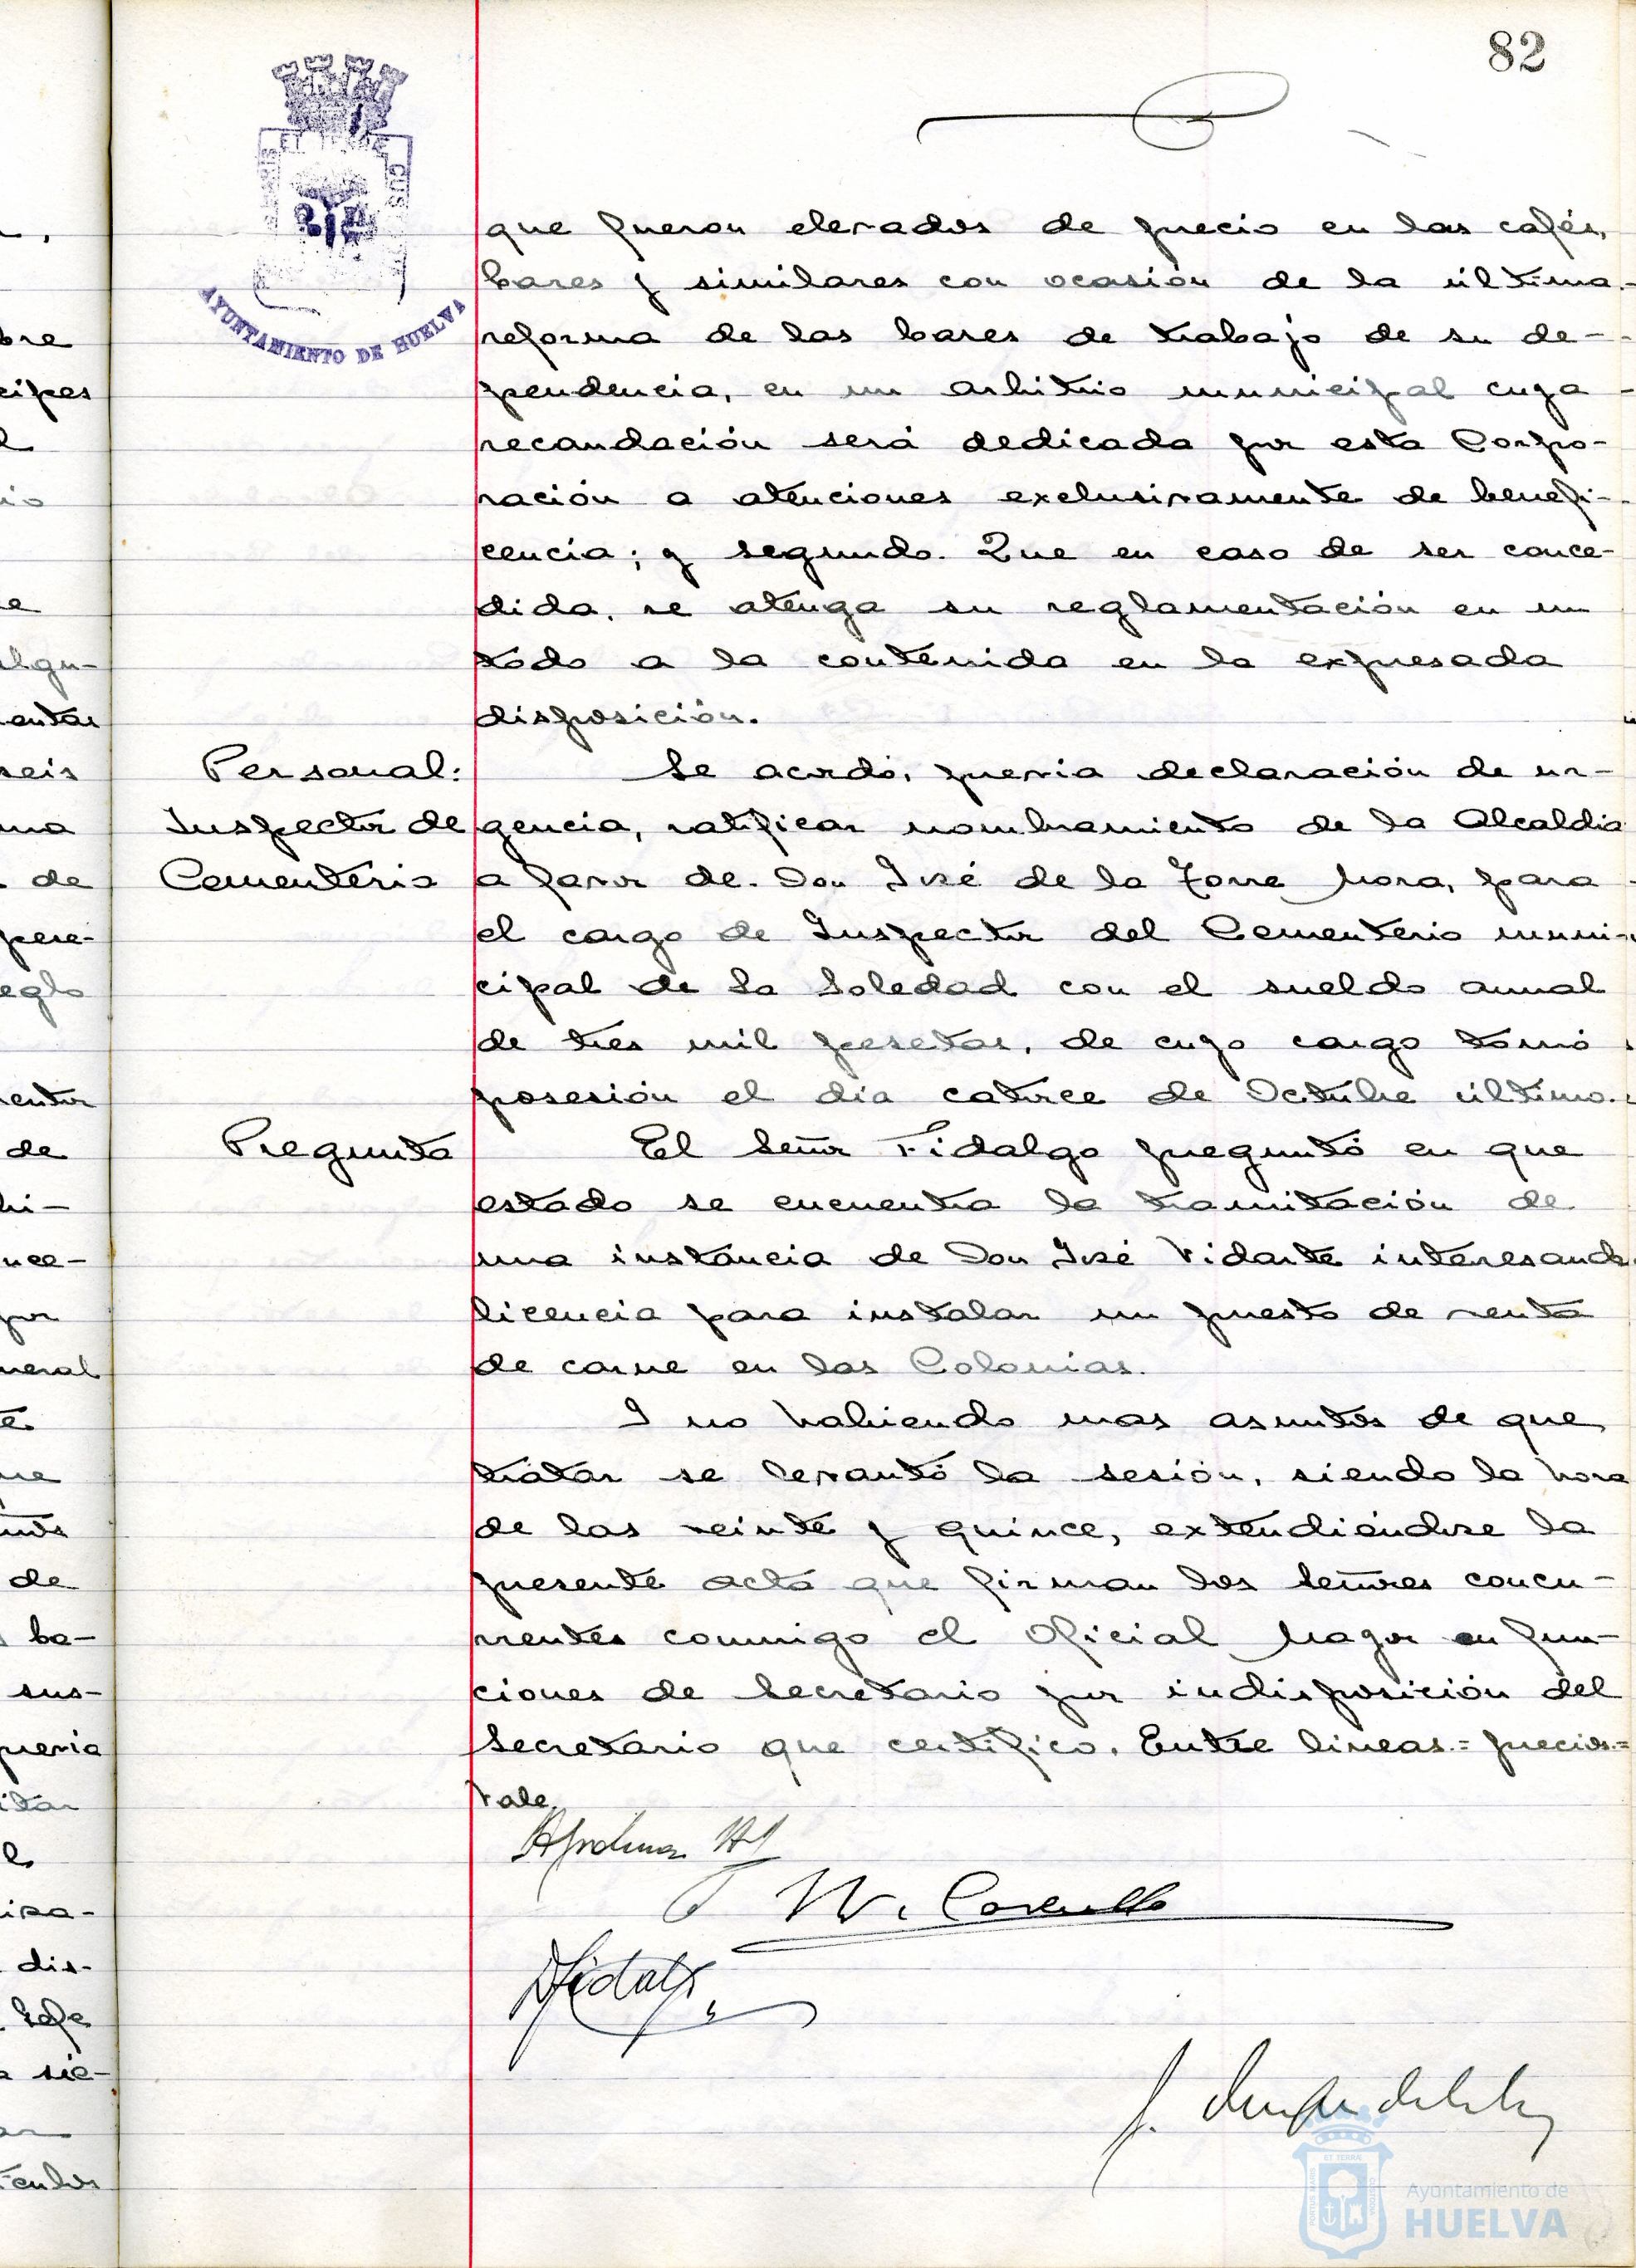 82
AYUNTAMIENTO DE HUELVA
que fueron elevados de precio en los cafés,
bares y similares con ocasión de la última
reforma de las bases de trabajo de su de-
pendencia, en un arbitrio municipal cuya
recaudación será dedicada por esta Corpo-
ración a atenciones exclusivamente de benefi-
cencia; y segundo. Que en caso de ser conce-
dida, se atenga su reglamentación en un
todo a la contenida en la expresada
disposición.
Personal: Se acordó, previa declaración de ur-
Inspector de gencia, ratificar nombramiento de la Alcaldia
Cementerio a favor de Don José de la Torre Mora, para
el cargo de Inspector del Cementerio muni-
cipal de la Soledad con el sueldo anual
de tres mil pesetas, de cuyo cargo tomó
posesión el día catorce de Octubre último.
Pregunta El Señor Fidalgo preguntó en que
estado se encuentra la tramitación de
una instancia de Don José Vidarte interesando
licencia para instalar un puesto de venta
de carne en las Colonias.
Y no habiendo mas asuntos de que
tratar se levantó la sesión, siendo la hora
de las veinte y quince, extendiéndose la
presente acta que firman los Señores concu-
rrentes conmigo el Oficial Mayor en fun-
ciones de Secretario por indisposición del
Secretario que certifico. Entre lineas.= precios.=
Vale.
Fidalgo
Ayuntamiento de
HUELVA